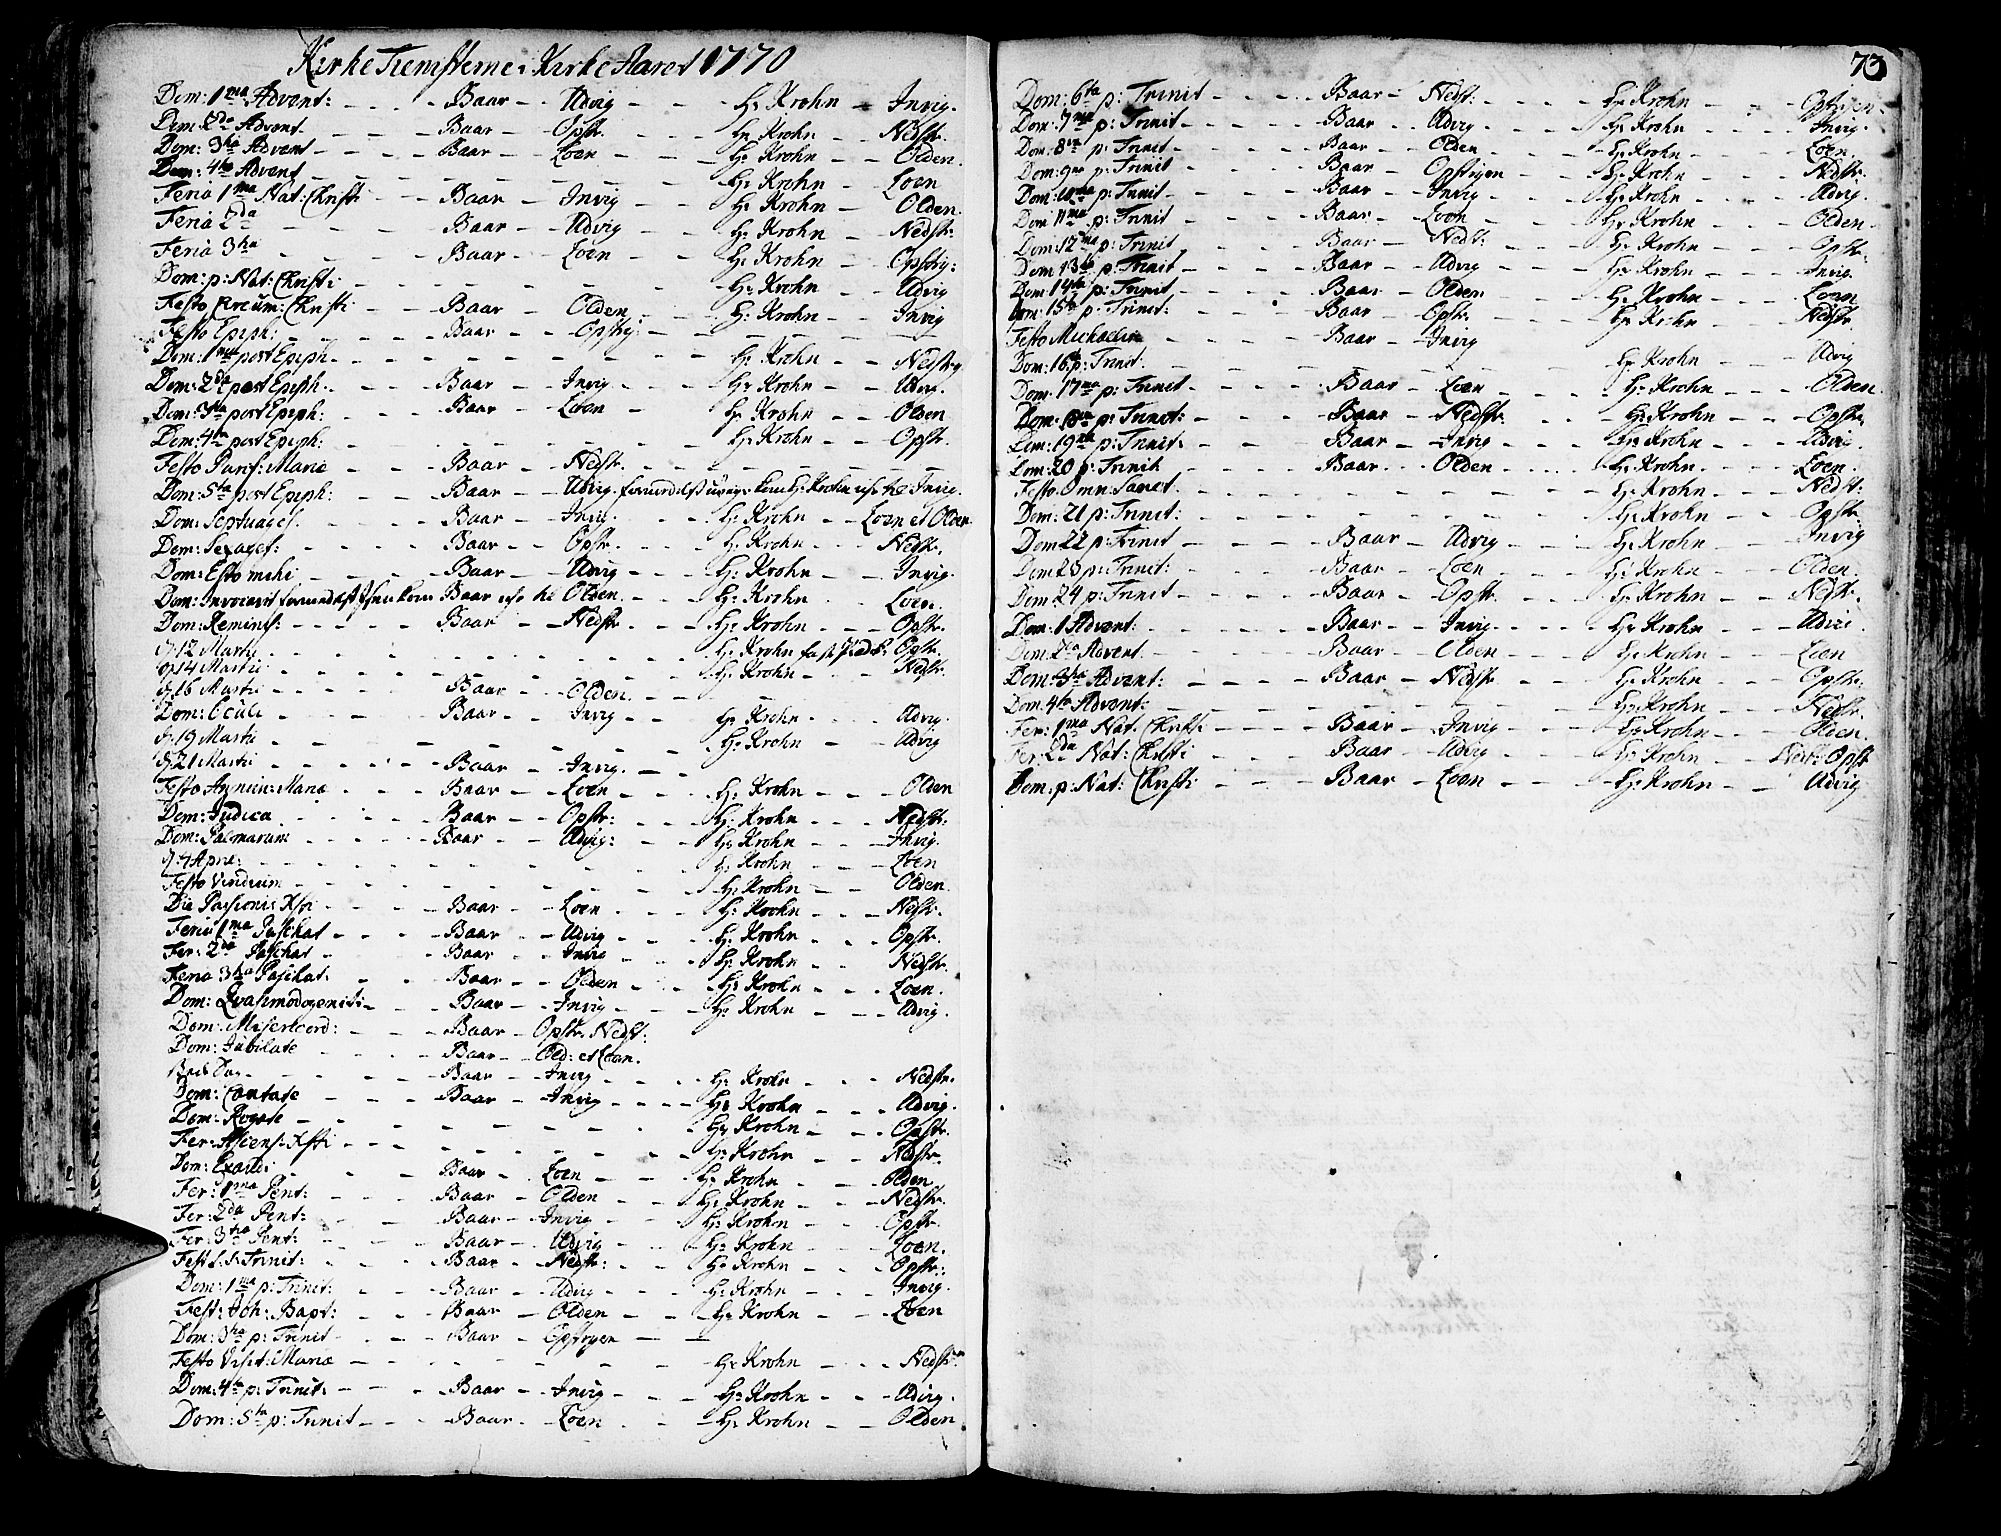 Kirke Tienisterne i Kirke Aaret 1770
Dom: 1ma Advent: - - - Baar - Udvig - - - Hr Krohn - Invig.
Dom: 2da Advent - - - Baar - Opstr. - - - Hr Krohn - Nedstr.
Dom: 3tia Advent - - - Baar - Loen - - - Hr Krohn - Olden.
Dom: 4ta Advent - - - Hr Krohn - Loen
Feria 1ma Nat: Christi - - - Baar - Invig - - - Hr Krohn - Olden.
Feria 2da - - - Baar - Udvig - - - Hr Krohn - Nedstr:
Feria 3tia - - - Baar - Loen - - - Hr Krohn - Opstry:
Dom: p: Nat: Christi - - - Hr Krohn - Udvig
Festo Circum: Christi - - - Baar - Olden - - - Hr Krohn - Invig
Festo Epiph: - - - Baar - Opstry: - - -
Dom: 1ma post Epiph. - - - Hr Krohn - Nedstry
Dom: 2da post Epiph. - - - Baar - Invig - - - Hr Krohn - Udvig.
Dom: 3tia post Epiph: - - - Baar - Loen - Hr Krohn - Olden
Dom: 4ta post Epiph: - - - Hr Krohn - Opstr.
Festo Purif: Mariæ - - - Baar - Nedstr. - - -
Dom: 5ta post Epiph: - - - Baar - Udvig. formedelst uveyr kom Hr Krohn iche til Invig.
Dom: Septuages. - - - Baar - Invig. - - - Hr Krohn - - Loen et Olden
Dom: Sexages: - - - Baar - - Opstr. - - - Hr Krohn - - - Nedstr.
Dom: Esto mihi - - - Baar - Udvig - - - Hr Krohn - - Invig.
Dom: Invocavit formedelst kom Baar iche til Olden - - - Hr Krohn - - - Loen.
Dom: Remins: - - - Baar - Nedstr - - - Hr Krohn - - - Opstr.
d. 12 Martii - - - Hr Krohn Opstr.
d. 14 Martii - - - Hr Krohn - - - Nedstr.
d. 16 Martii - - - Baar - - Olden - - -
Dom: Oculi - - - Baar - - Invig - - - Hr Krohn - - - Udvig.
d. 19 Martii - - - Hr Krohn - - - Udvig
d. 21 Martii - - - Baar - - Invig. - - -
Festo Annun: Mariæ - - - Baar - - Loen - - - Hr Krohn - - - Olden
Dom: Judica - - - Baar - - Opstr: - - - Hr Krohn - - - Nedstr:
Dom: Palmarum - - - Baar - - Udvig: - - - Hr Krohn - - - Invig.
d. 4 April: - - - Hr Krohn - - - Loen
Festo Viridium - - - Hr Krohn - - Olden.
Die Passionis Xsti - - - Baar - - Loen - - - Hr Krohn - - - Nedstr.
Feria 1ma Paschat - - - Baar - - Udvig - - - Hr Krohn - - - Opstr.
Fer: 2da Paschat - - - Baar - - Invig - - - Hr Krohn - - - Nedstr.
Feria 3tia Paschat: - - - Baar - - Olden - - - Hr Krohn - - - Loen.
Dom: Qvasimodogeniti - - - Baar - - Invig - - - Hr Krohn - - - Udvig.
Dom: Misericord: - - - Baar - Opstr. Nedst:
Dom: Jubilate - - - Baar - Old: et Loen.
- - - Baar - Invig - - - Hr Krohn - - - Nedstr.
Dom: Cantate - - - Baar - - Invig - - - Hr Krohn - - - Udvig.
Dom: Rogate - - - Hr Krohn - - - Opstr.
Fer: Ascens: Xsti - - - Hr Krohn - - - Nedstr.
Dom: Exaudi - - - Baar - Loen - - - Hr Krohn - - - Olden
Fer: 1ma Pent: - - - Baar - Olden - - - Hr Krohn - - - Nedstr.
Fer: 2da Pent: - - - Baar - Invig - - - Hr Krohn - - - Opstr.
Fer: 3tia Pent: - - - Baar - Udvig - - - Hr Krohn - - - Loen.
Fest: S: Trinit: - - - Baar - Nedstr: - - - Hr Krohn - - - Opstr:.
Dom: 1ma p: Trinit: - - - Baar - Udvig - - - Hr Krohn - - - Invig.
Fest: Joh: Bapt: - - - Baar - Olden - - - Hr Krohn - - - Loen
Dom: 3tia p: Trinit - - - Baar - Opstryen - -
Festo Visit: Mariæ - - - Hr Krohn - - - Nedstr.
Dom: 4ta p: Trinit: - - - Baar - Invig - - - Hr Krohn - - - Udvig.
Dom: 5ta p: Trinit - - - Baar - Loen - - - Hr Krohn - - - Olden
73
Dom: 6ta p: Trinit - - - Baar - Nedst: - - - Hr Krohn - - - Opstryen
Dom: 7ma p: Trinit - - - Baar - Udvig - - - Hr Krohn - - - Invig.
Dom: 8va p: Trinit - - - Baar - Olden - - - Hr Krohn - - - Loen.
Dom: 9na p: Trinit - - - Baar - Opstryen - - - Hr Krohn - - - Nedstr.
Dom: 10ma p: Trinit - - - Baar - Invig - - - Hr Krohn - - - Udvig.
Dom: 11ma p: Trinit - - - Baar - Loen - - - Hr Krohn - - - Olden.
Dom: 12ma p: Trinit - - - Baar - Nedst: - - - Hr Krohn - - - Opstr.
Dom 13tia p: Trinit - - - Baar - Udvig - - - Hr Krohn - - - Invig.
Dom: 14ta p: Trinit - - - Baar - Olden - - - Hr Krohn - - - Loen
Dom: 15ta p: Trinit: - - - Baar - Opstr. - - - Hr Krohn - - - Nedstr.
Festo Michaelis - - - Baar - Invig
Dom: 16 p: Trinit: - - - Hr Krohn - - - Udvig
Dom: 17ma p: Trinit - - - Baar - Loen - - - Hr Krohn - - - Olden.
Dom: 18va p: Trinit: - - - Baar - Nedstr. - - - Hr Krohn - - - Opstr.
Dom: 19na p: Trinit: - - - Baar - Invig - - - Hr Krohn - - - Udvig
Dom: 20 p: Trinit - - - Baar - Olden - - - Hr Krohn - - - Loen.
Festo Omn: Sanct. - - - Hr Krohn - - - Nedst:
Dom: 21 p: Trinit: - - - Hr Krohn - - - Opstr:
Dom: 22 p: Trinit - - - Baar - Udvig - - - Hr Krohn - - - Invig
Dom 23 p: Trinit: - - - Baar - Loen - - - Hr Krohn - - - Olden.
Dom 24 p: Trinit - - - Baar - Opstr. - - - Hr Krohn - - - Nedstr.
Dom: 1 Advent: - - - Baar - Invig - - - Hr Krohn - - - Udvig
Dom: 2da Advent - - - Baar - Olden - - - Hr Krohn - - - Loen
Dom: 3tia Advent: - - - Baar - Nedstr - - - Hr Krohn - - - Opstr.
Dom. 4ta Advent: - - - Hr Krohn - - - Nedstr.
Fer: 1ma Nat: Christi - - - Baar - Invig - - - Hr Krohn - - - Olden.
Fer: 2da Nat: Christi - - - Baar - Udvig - - - Hr Krohn - - - Nedst: Opst
Dom. p: Nat: Christi - - - Baar - Loen - - - Hr Krohn - - - Udvig